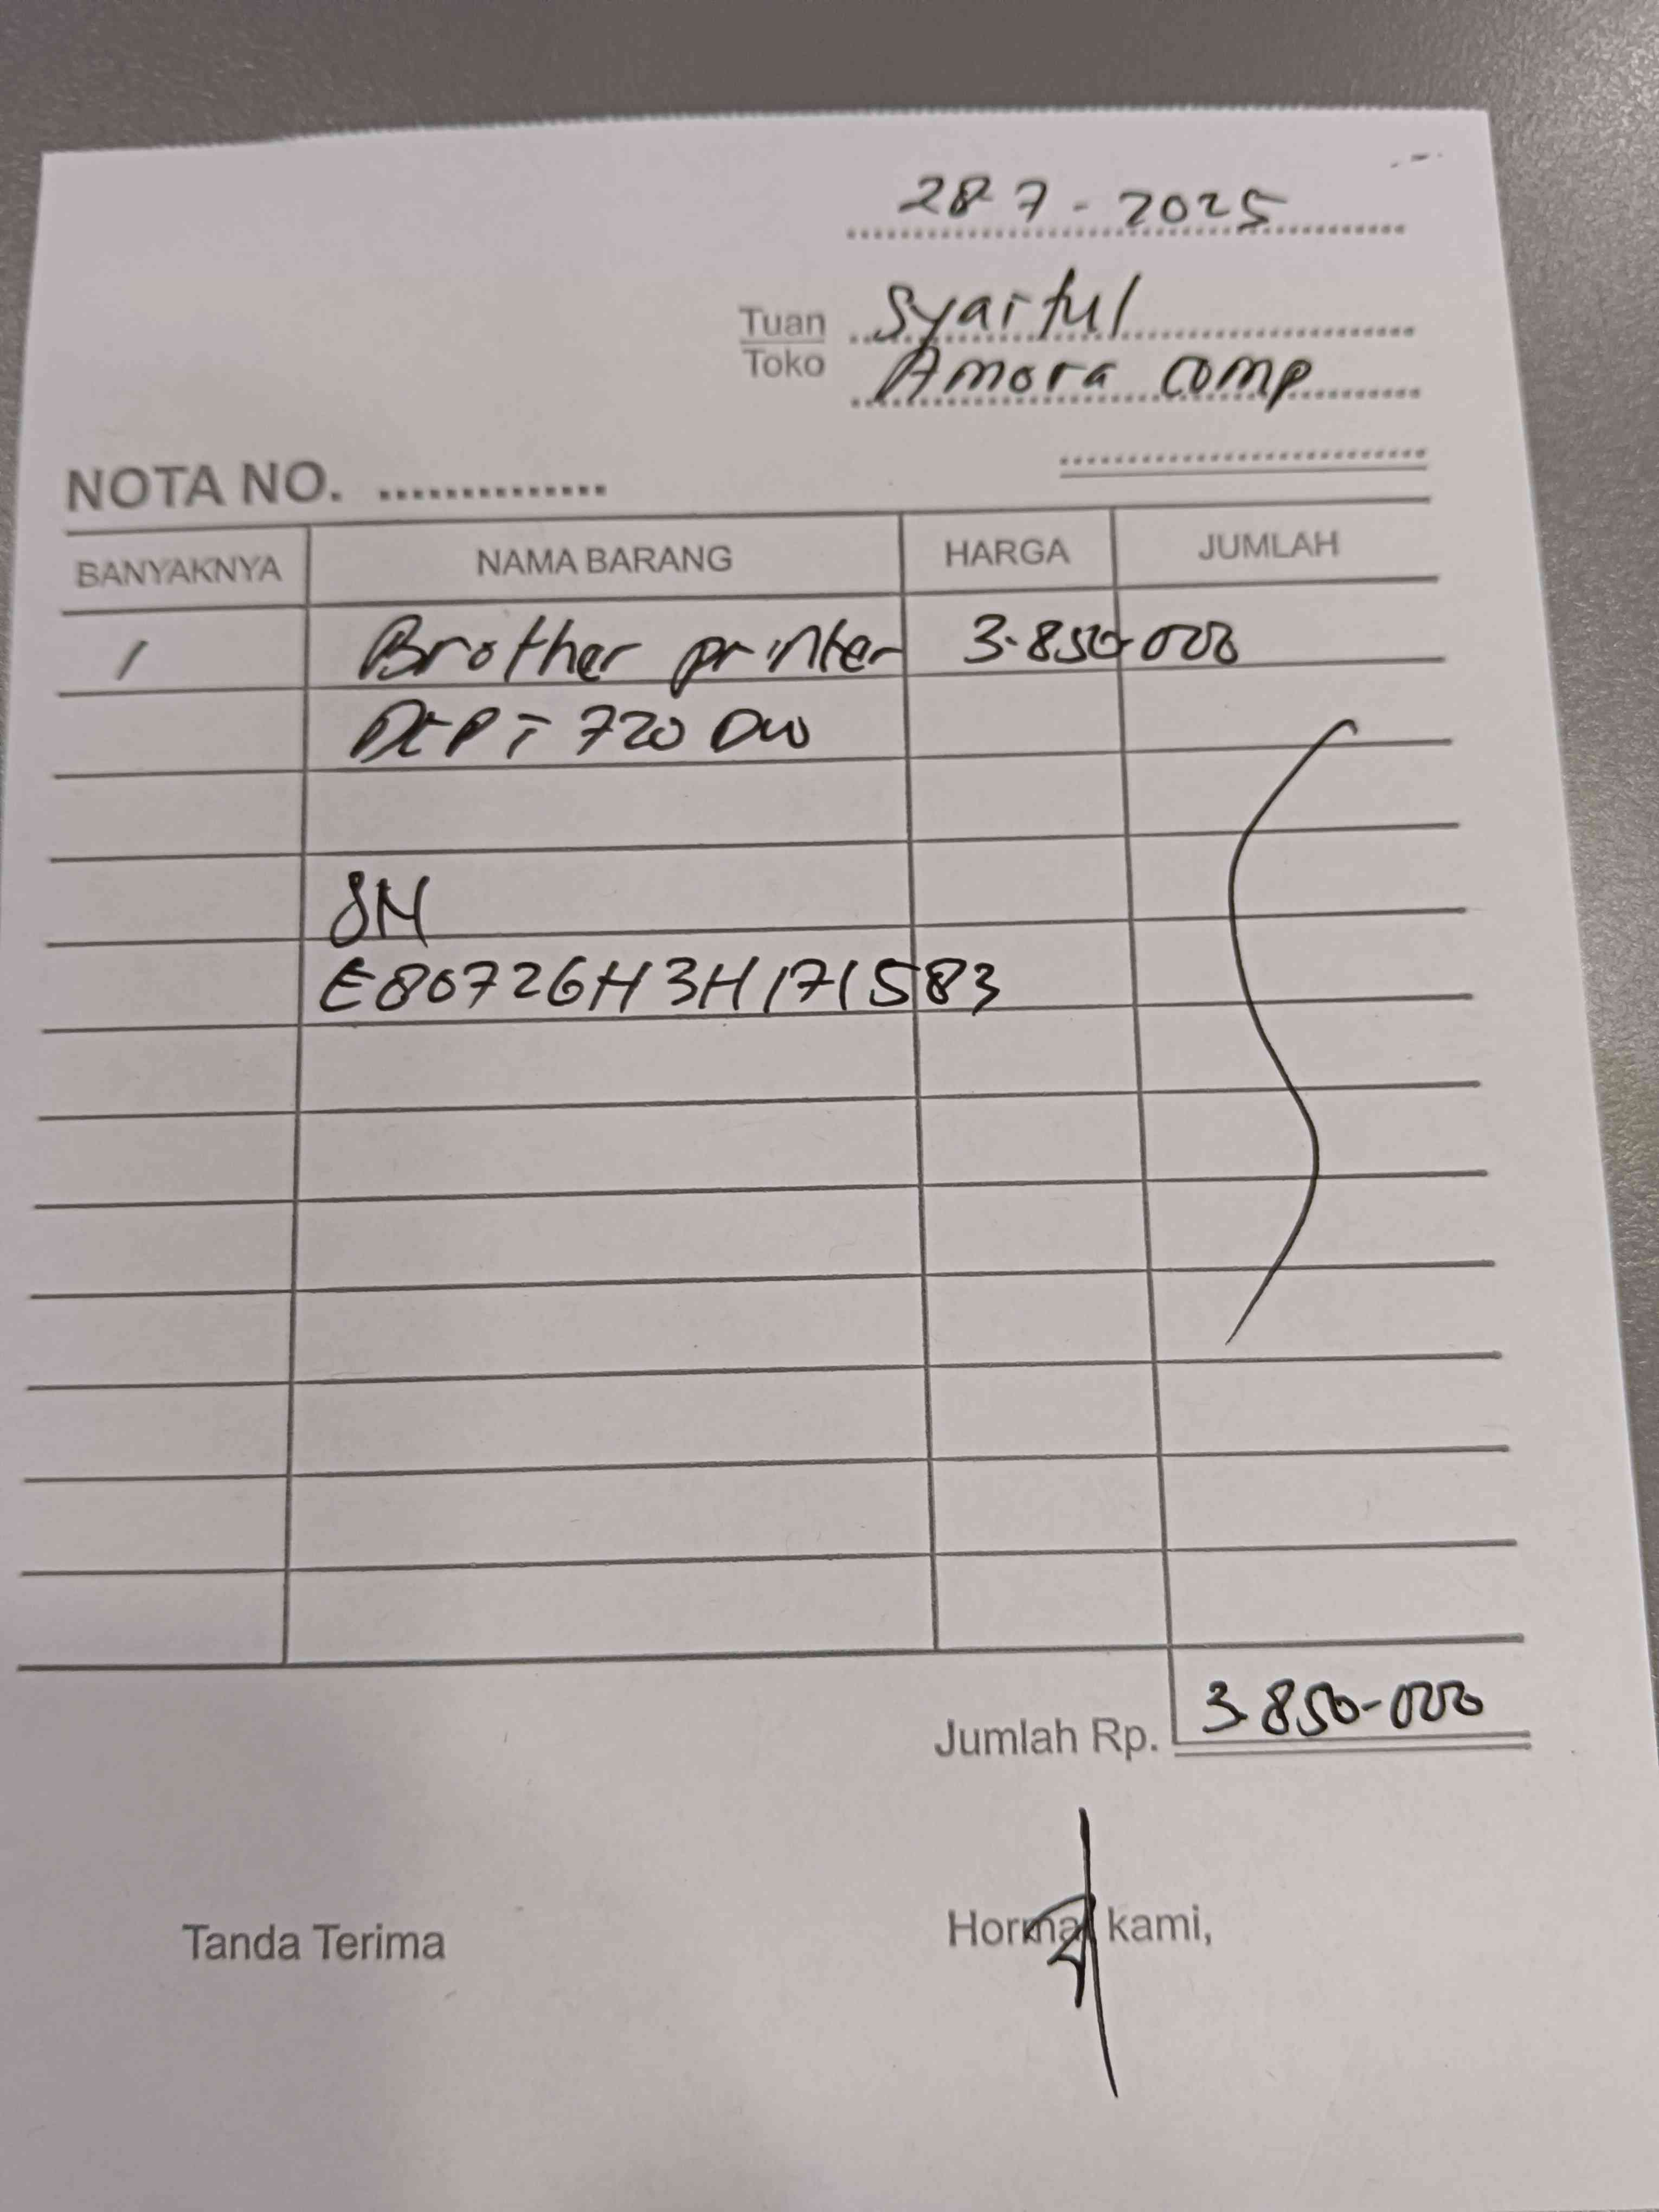 28 7 - 2025
Tuan Syaiful
Toko Amora comp
NOTA NO. ..............
BANYAKNYA NAMA BARANG HARGA JUMLAH
1 Brother printer 3.850-000
DCP T 720 DW
SN
E80726H3H171583
Jumlah Rp. 3.850-000
Tanda Terima Hormat kami,